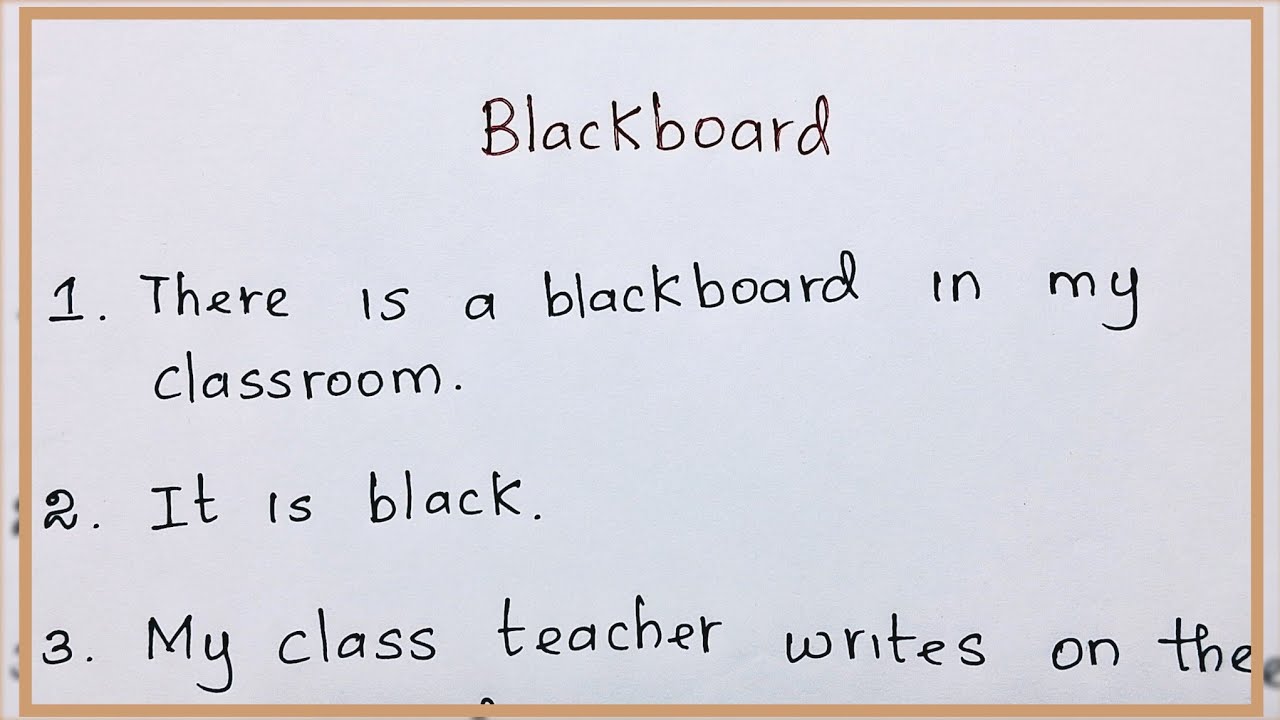 Blackboard
1. There is a blackboard in my
classroom.
2. It is black.
3. My class teacher writes on the